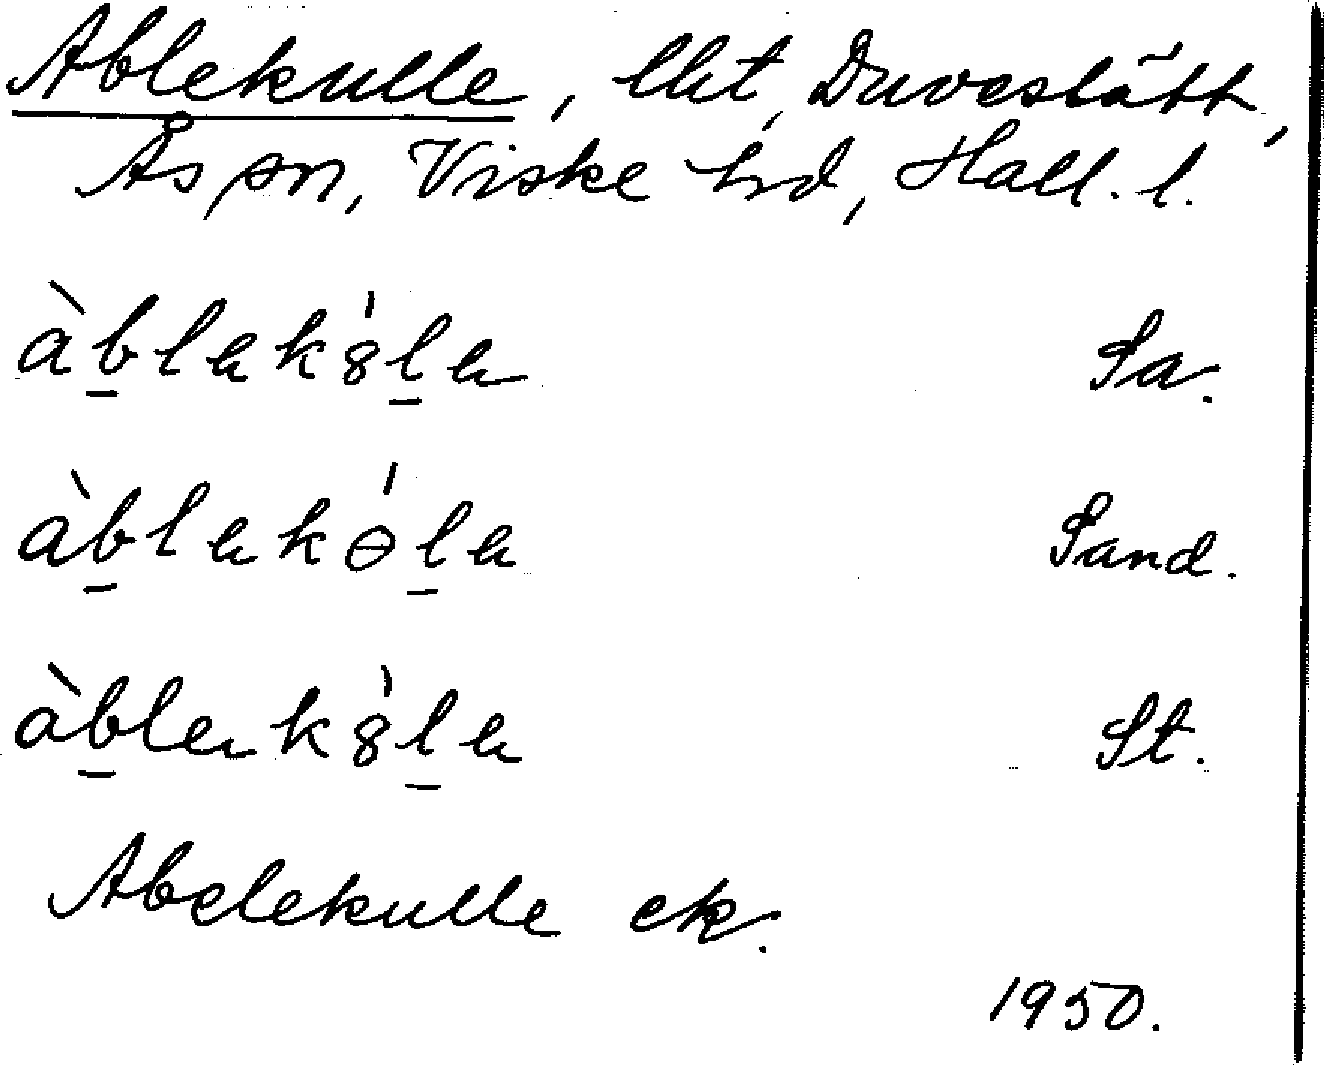 Ablekulle, lht, Duveslätt,
Ås sn, Viske hd, Hall. l.
àb̲ləkȣ́l̲ə Sa.
àb̲ləkɵ́l̲ə Sand.
àb̲ləkȣ́l̲ə St.
Abelekulle ek.
1950.